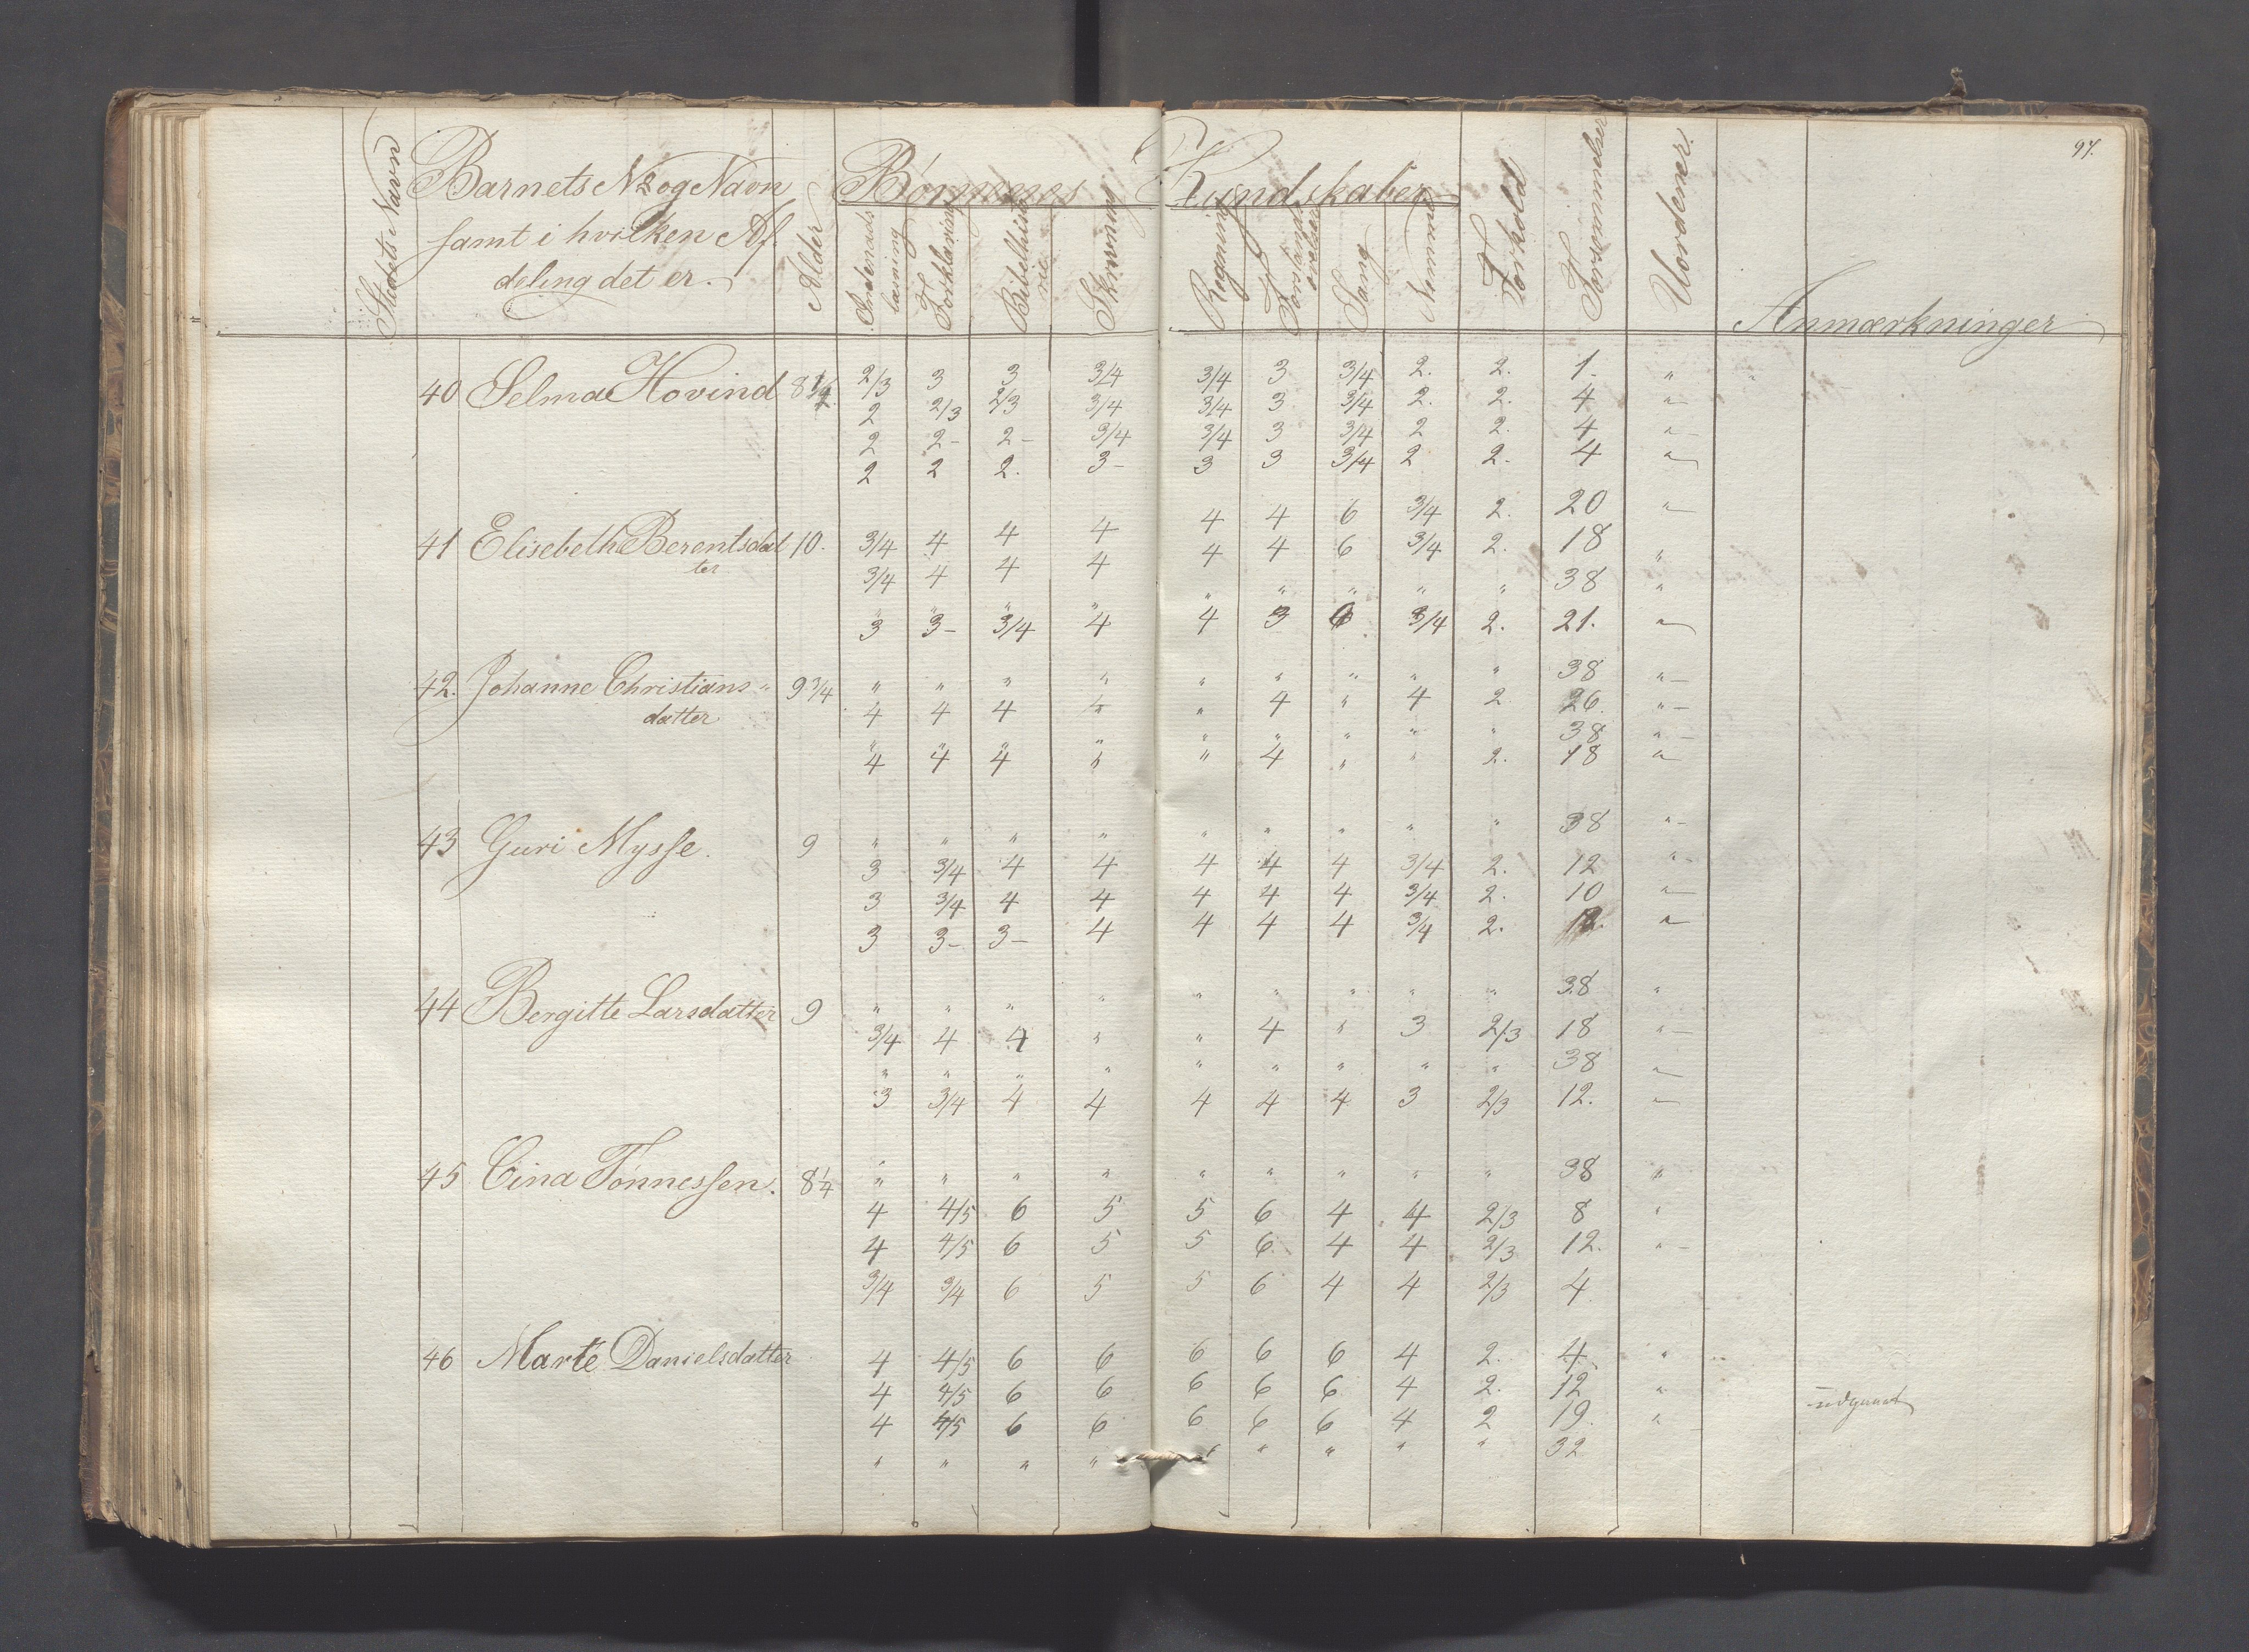 97.
Stedets Navn
Barnets No og Navn
samt i hvilken Af-
deling det er.
Alder
Børnenes Kundskaber
Indenads læsning
Forklaring
Bibelhisto rie
Skrivning
Regning
Forstands øvelser
Sang
Nemme
Forhold
Forsømmelser
Uordener
Anmærkninger
2/3 3 3 3/4 3/4 3 3/4 2. 2. 1. "
40 Selma Hovind 8 1/2 2 2/3 2/3 3/4 3/4 3 3/4 2. 2. 4 "
2 2- 2- 3/4 3/4 3 3/4 2 2. 4 "
2 2 2. 3- 3 3 3/4 2 2. 4 "
41 Elisebeth Berentsdat 10. 3/4 4 4 4 4 4 6 3/4 2. 20 "
ter 3/4 4 4 4 4 4 6 3/4 2. 18 "
" " " " " " " " " 38 "
3 3- 3/4 4 4 3 6 3/4 2. 21. "
42. Johanne Christians " 9 3/4 " " " " " " " " " 38 "
datter 4 4 4 4 " 4 " 4 2 26. "
" " " " " " " " " 38 "
4 4 4 " " 4 " " 2. 18 "
43 Guri Mysse. 9 " " " " " " " " " 38 "
3 3/4 4 4 4 4 4 3/4 2. 12 "
3 3/4 4 4 4 4 4 3/4 2. 10 "
3 3- 3- 4 4 4 4 3/4 2. 12. "
44 Bergitte Larsdatter 9 " " " " " " " " " 38 "
3/4 4 4 " " 4 " 3 2/3 18 "
" " " " " " " " " 38 "
3 3/4 4 4 4 4 4 3 2/3 12. "
45 Cina Tønnessen. 8 1/4 " " " " " " " " " 38 "
4 4/5 6 5 5 6 4 4 2/3 8 "
4 4/5 6 5 5 6 4 4 2/3 12. "
3/4 3/4 6 5 5 6 4 4 2/3 4
46 Marte Danielsdatter 4 4/5 6 6 6 6 6 4 2. 4. "
4 4/5 6 6 6 6 6 4 2. 12 " udgaaet
4 4/5 6 6 6 6 6 4 2 19. "
" " " " " " " " " 32